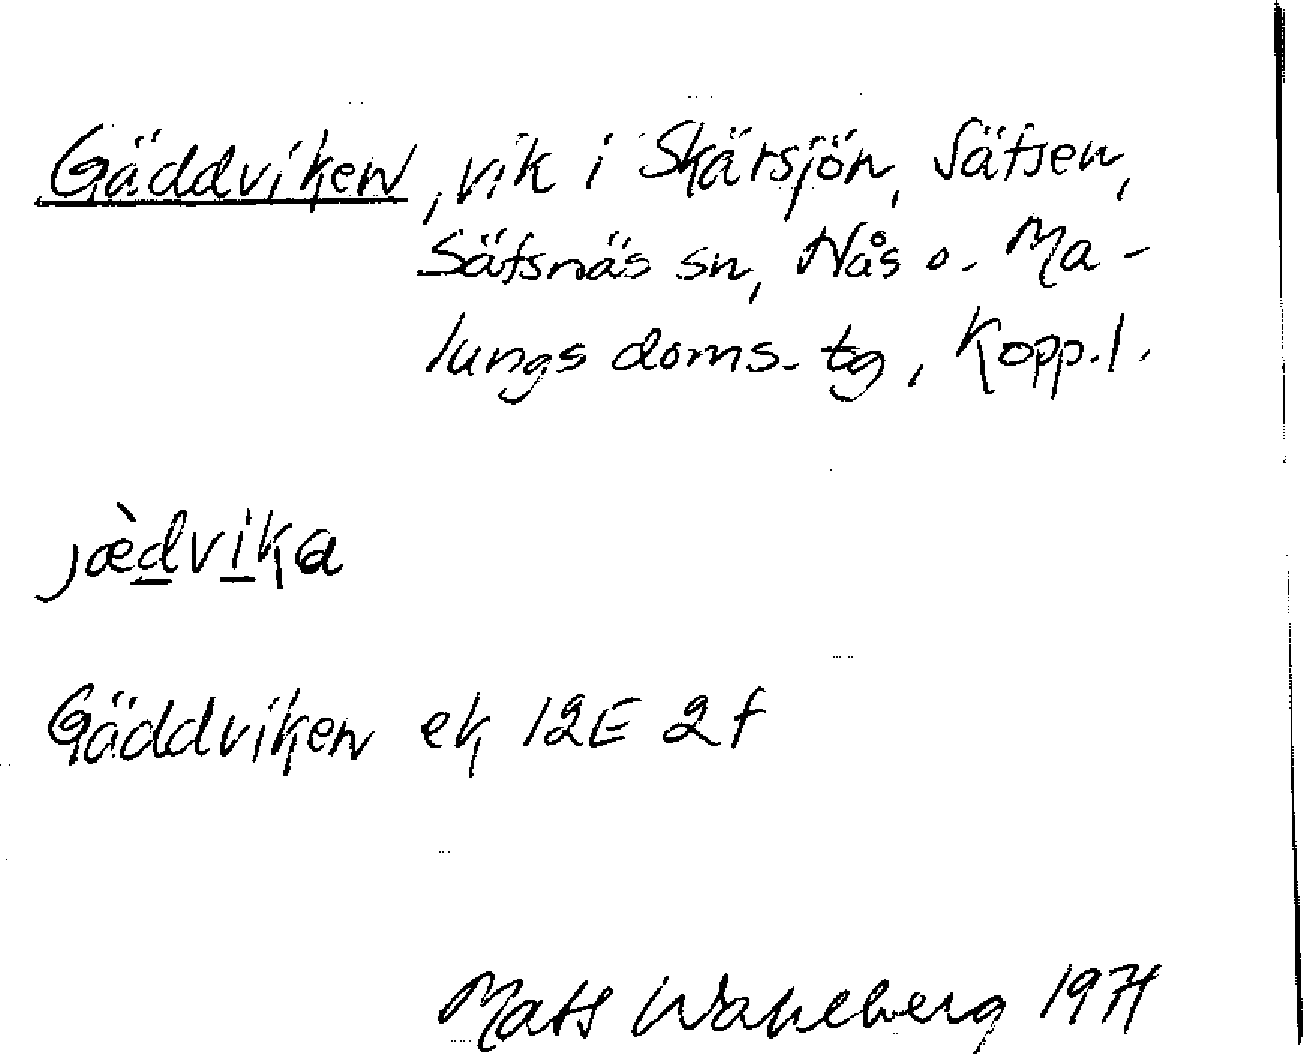 Gäddviken, vik i Skärsjön, Säfsen,
Säfsnäs sn, Nås o. Ma-
lungs doms. tg, Kopp. l.
jæ̀dvika
Gäddviken ek 12E 2f
Mats Wahlberg 1971